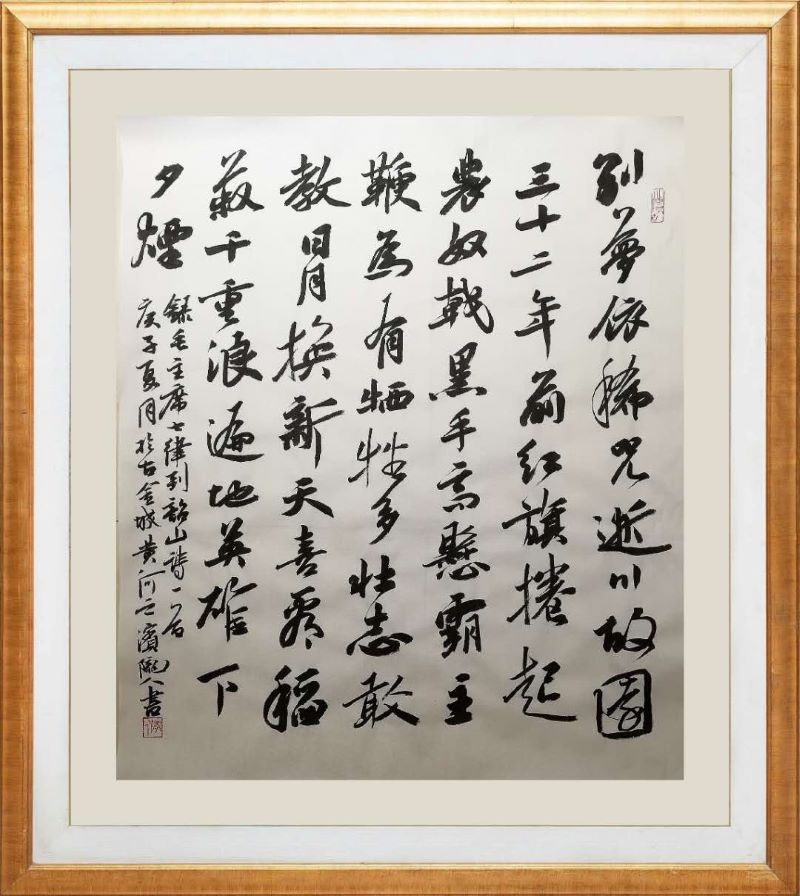 别夢依稀咒逝川故園
三十二年前红旗捲起
農奴戟黑手高懸霸主
鞭為有牺牲多壮志敢
教日月換新天喜看稻
菽千重浪遍地英雄下
夕煙
録毛主席七律到韶山詩一首
庚子夏月於古金城黄河之濱隴人書